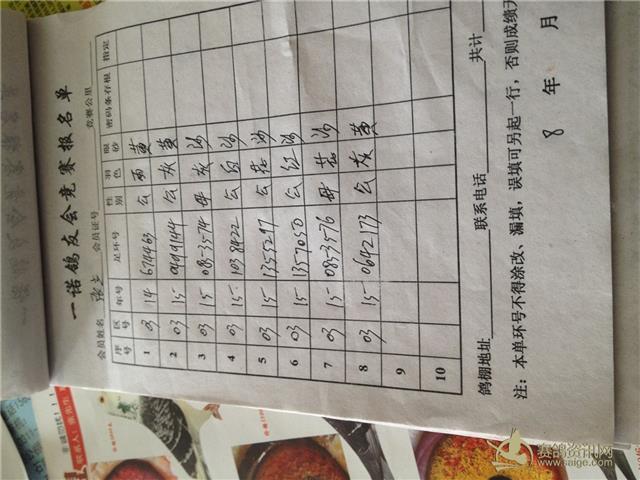 一诺鸽友会竞赛报名单
会员姓名 会员证号 竞赛公里
序号 区号 年号 足环号 性别 羽色 眼砂 密码条存根 指定
1 03 14 674463 公 雨 黄
2 03 15 公 灰 黄
3 03 15 0853574 母 灰 沙
4 03 15 1038422 公 红 沙
5 03 15 1355297 公 花 沙
6 03 15 1357050 公 红 沙
7 03 15 0853576 母 花 沙
8 03 15 0642173 公 灰 黄
9
10
鸽棚地址 联系电话 共计
注：本单环号不得涂改、漏填，误填可另起一行，否则成绩无
年 8 月
非诚勿扰！
联系人：
赛鸽资讯网
www.saige.com